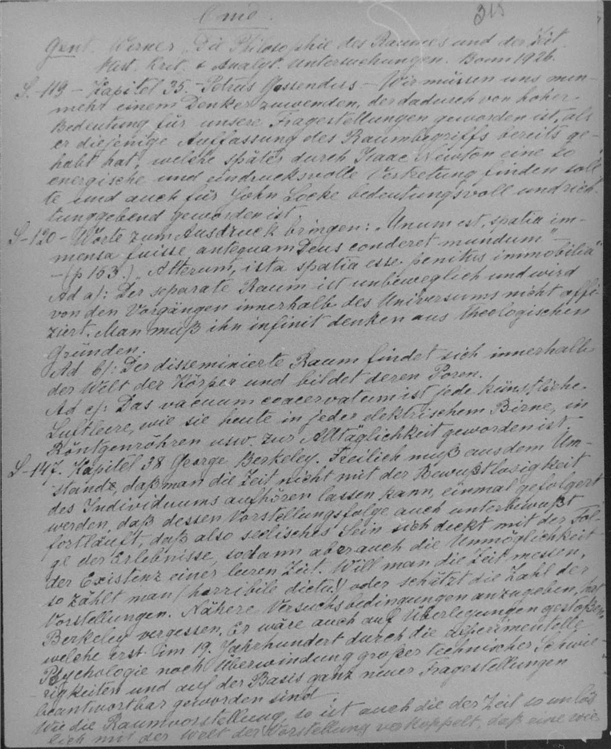 Gent. Werner, Die Philosophie des Raumes und der Zeit
Hist. Krit. & Analyt. Untersuchungen. Bonn 1926.
S. 119 – Kapitel 35. Petrus Gassendus – Wir müssen uns nun-
mehr einem Denker zuwenden, der dadurch von hoher
Bedeutung für unsere Fragestellungen geworden ist, als
er diejenige Auffassung des Raumbegriffs bereits ge-
habt hat, welche später durch Isaac Newton eine so
energische und eindrucksvolle Vertretung finden soll
te und auch für John Locke bedeutungsvoll und rich-
tunggebend geworden ist.
S-120 – Worte zum Ausdruck bringen: "Unum est, spatia im-
mensa fuisse antequam Deus conderet mundum"
– (p 163.) "Alterum, ista spatia esse penitus immobilia"
Ad a): Der separate Raum ist unbeweglich und wird
von den Vorgängen innerhalb des Universums nicht affi-
ziert. Man muß ihn infinit denken aus theologischen
Gründen.
Ad b): Der disseminierte Raum findet sich innerhalb
der Welt der Körper und bildet deren Poren.
Ad c): Das vacuum coacervatum ist jede künstliche
Luftleere, wie sie heute in jeder elektrischen Birne, in
Röntgenröhren usw. zur Alltäglichkeit geworden ist.
S-147. Kapitel 38 George Berkeley. Freilich muß aus dem Um-
stande, daß man die Zeit nicht mit der Bewußtlosigkeit
des Individuums aufhören lassen kann, einmal gefolgert
werden, daß dessen Vorstellungsfolge auch unterbewußt
fortläuft, daß also seelisches Sein sich deckt mit der Fol-
ge der Erlebnisse, sodann aber auch die Unmöglichkeit
der Existenz einer leeren Zeit. Will man die Zeit messen,
so zählt man (horribile dictu!) oder schätzt die Zahl der
Vorstellungen. Nähere Versuchsbedingungen anzugeben, hat
Berkeley vergessen. Er wäre auch auf Überlegungen gestoßen,
welche erst im 19. Jahrhundert durch die experimentelle
Psychologie nach Überwindung großer technischer Schwie
rigkeiten und auf der Basis ganz neuer Fragestellungen
beantwortbar geworden sind.
Wie die Raumvorstellung so ist auch die der Zeit so unlös
lich mit der Welt der Vorstellung verkoppelt, daß eine